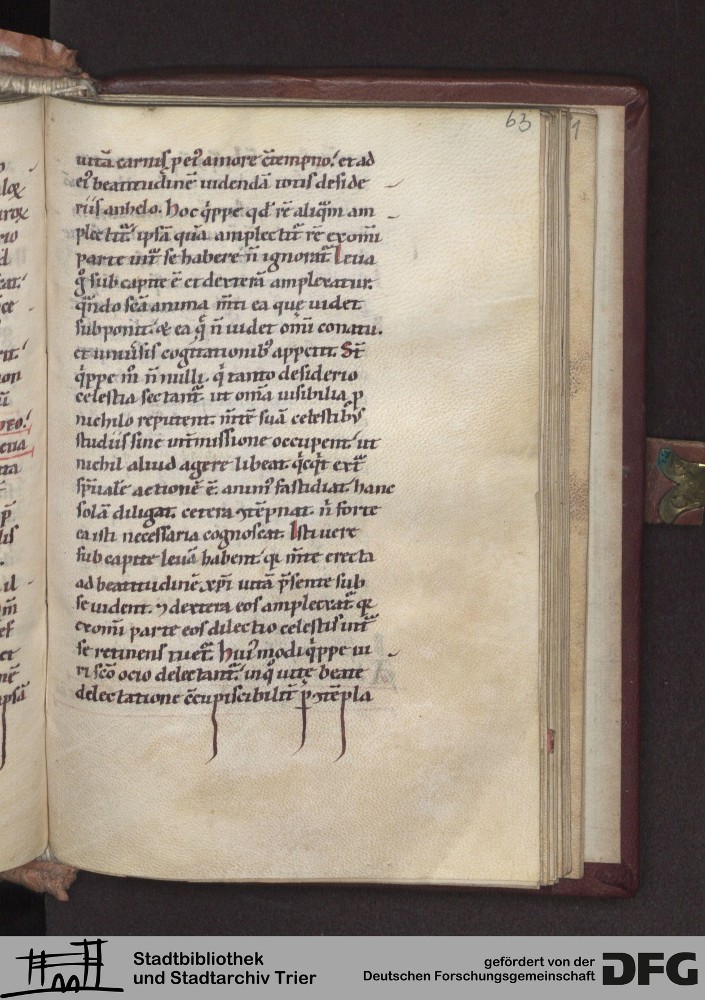 63
1
uitā carnis p ei᷒ amore ꝯtempno. et ad
ei᷒ beatitudinē uidendā totis deside
riis anhelo. Hoc q̇ppe qd̄ rē aliq̄m am
plectit᷑. ipsā quā amplectit᷑ rē ex om̄i
parte int᷑ se habere n̄ ignorat᷑. Leua
g̊ sub capite ē et dexterā amplexatur.
q̄ndo sc̄a anima m̄ti ea quę uidet
subponit. & ea q̨̇ n̄ uidet om̄i conatu.
et uniu͛sis cogitationib᷒ appetit. St̄
q̇ppe m̊ n̄ nulli. q̇ tanto desiderio
celestia sectant᷑. ut om̄a uisibilia p
nichilo reputent. m̄tē suā celestib᷒
studiis sine int͛missione occupent. ut
nichil aliud agere libeat. q̇cq̇d ext͛
sp̄uale actionē ē. anim᷒ fastidiat. hanc
solā diligat. cetera ꝯtēpnat. n̄ forte
ea isti necessaria cognoscat. Isti uere
sub capite leuā habent. qꝛ m̄te erecta
ad beatitudinē xp̄i uitā p̄sente sub
se uident. ⁊ dextera eos amplexat᷑. qꝛ
ex om̄i parte eos dilectio celestis int᷑
se retinens tuet᷑. Hui᷒modi q̇ppe ui
ri sc̄o ocio delectant᷑. inq̇ uitę beate
delectatione ꝯcupiscibilit͛ p̱ ꝯtēpla
Stadtbibliothek
und Stadtarchiv Trier
gefördert von der
Deutschen Forschungsgemeinschaft
DFG